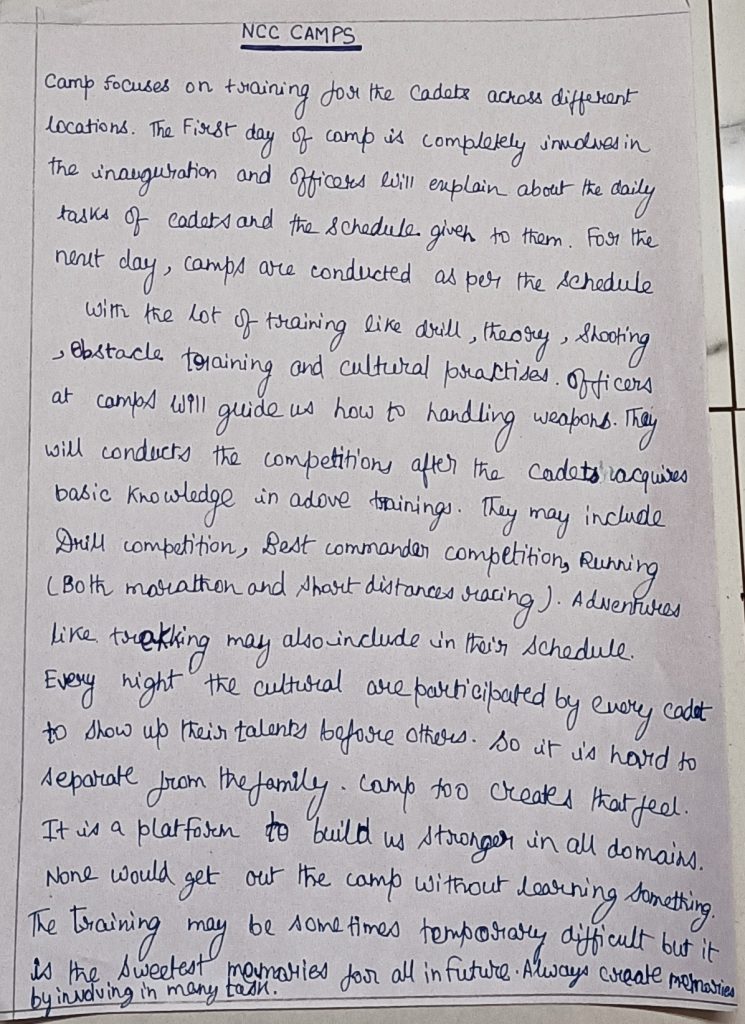 NCC CAMPS
Camp focuses on training for the Cadets across different
locations. The First day of camp is completely involves in
the inauguration and officers will explain about the daily
tasks of cadets and the schedule given to them. For the
next day, camps are conducted as per the schedule
with the lot of training like drill, theory, shooting
, obstacle training and cultural practises. Officers
at camps will guide us how to handling weapons. They
will conducts the competitions after the cadets acquires
basic knowledge in adove trainings. They may include
Drill competition, Best commander competition, Running
(Both marathon and short distances racing). Adventures
like trekking may also include in their schedule.
Every night the cultural are participated by every cadet
to show up their talents before others. So it is hard to
separate from the family. Camp too creates that feel.
It is a platform to build us stronger in all domains.
None would get out the camp without learning something.
The Training may be sometimes temporary difficult but it
is the sweetest memories for all in future. Always create memories
by involving in many task.